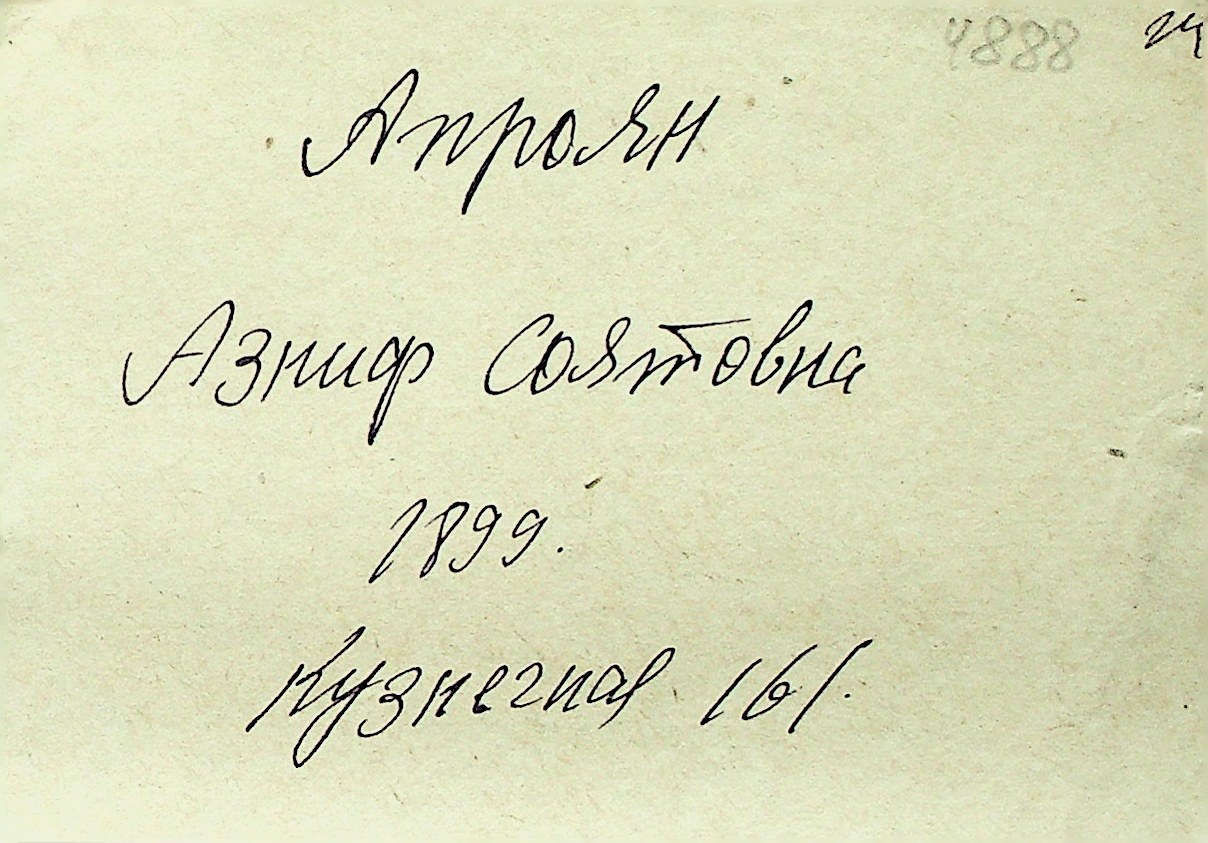 4888
Апроян
Азниф Соятовна
1899.
Кузнечная 161.